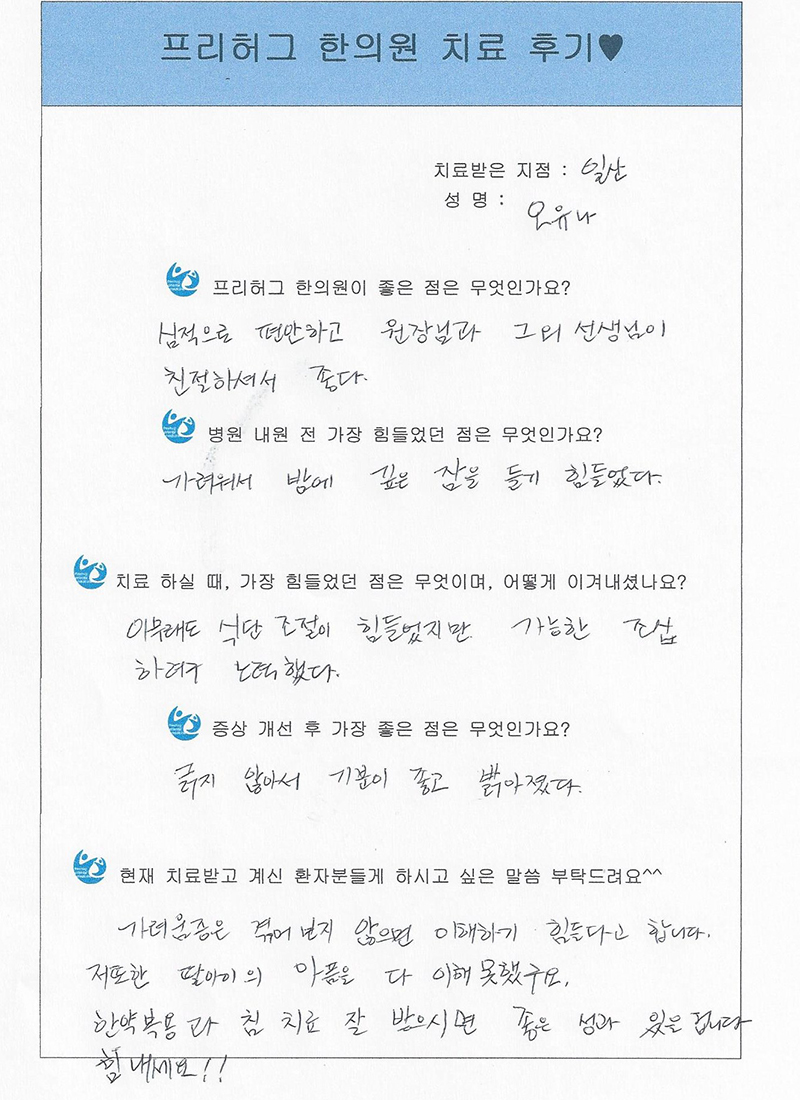 프리허그 한의원 치료 후기♥
치료받은 지점 : 일산
성 명 : 오유나
프리허그 한의원이 좋은 점은 무엇인가요?
심적으로 편안하고 원장님과 그외 선생님이
친절하셔서 좋다.
병원 내원 전 가장 힘들었던 점은 무엇인가요?
가려워서 밤에 깊은 잠을 들기 힘들었다.
치료 하실 때, 가장 힘들었던 점은 무엇이며, 어떻게 이겨내셨나요?
아무래도 식단 조절이 힘들었지만 가능한 조심
하려구 노력했다.
증상 개선 후 가장 좋은 점은 무엇인가요?
긁지 않아서 기분이 좋고 밝아졌다.
현재 치료받고 계신 환자분들게 하시고 싶은 말씀 부탁드려요^^
가려움증은 겪어 보지 않으면 이해하기 힘들다고 합니다.
저또한 딸아이의 아픔을 다 이해 못했구요.
한약복용과 침 치료 잘 받으시면 좋은 성과 있을 겁니다
힘내세요!!